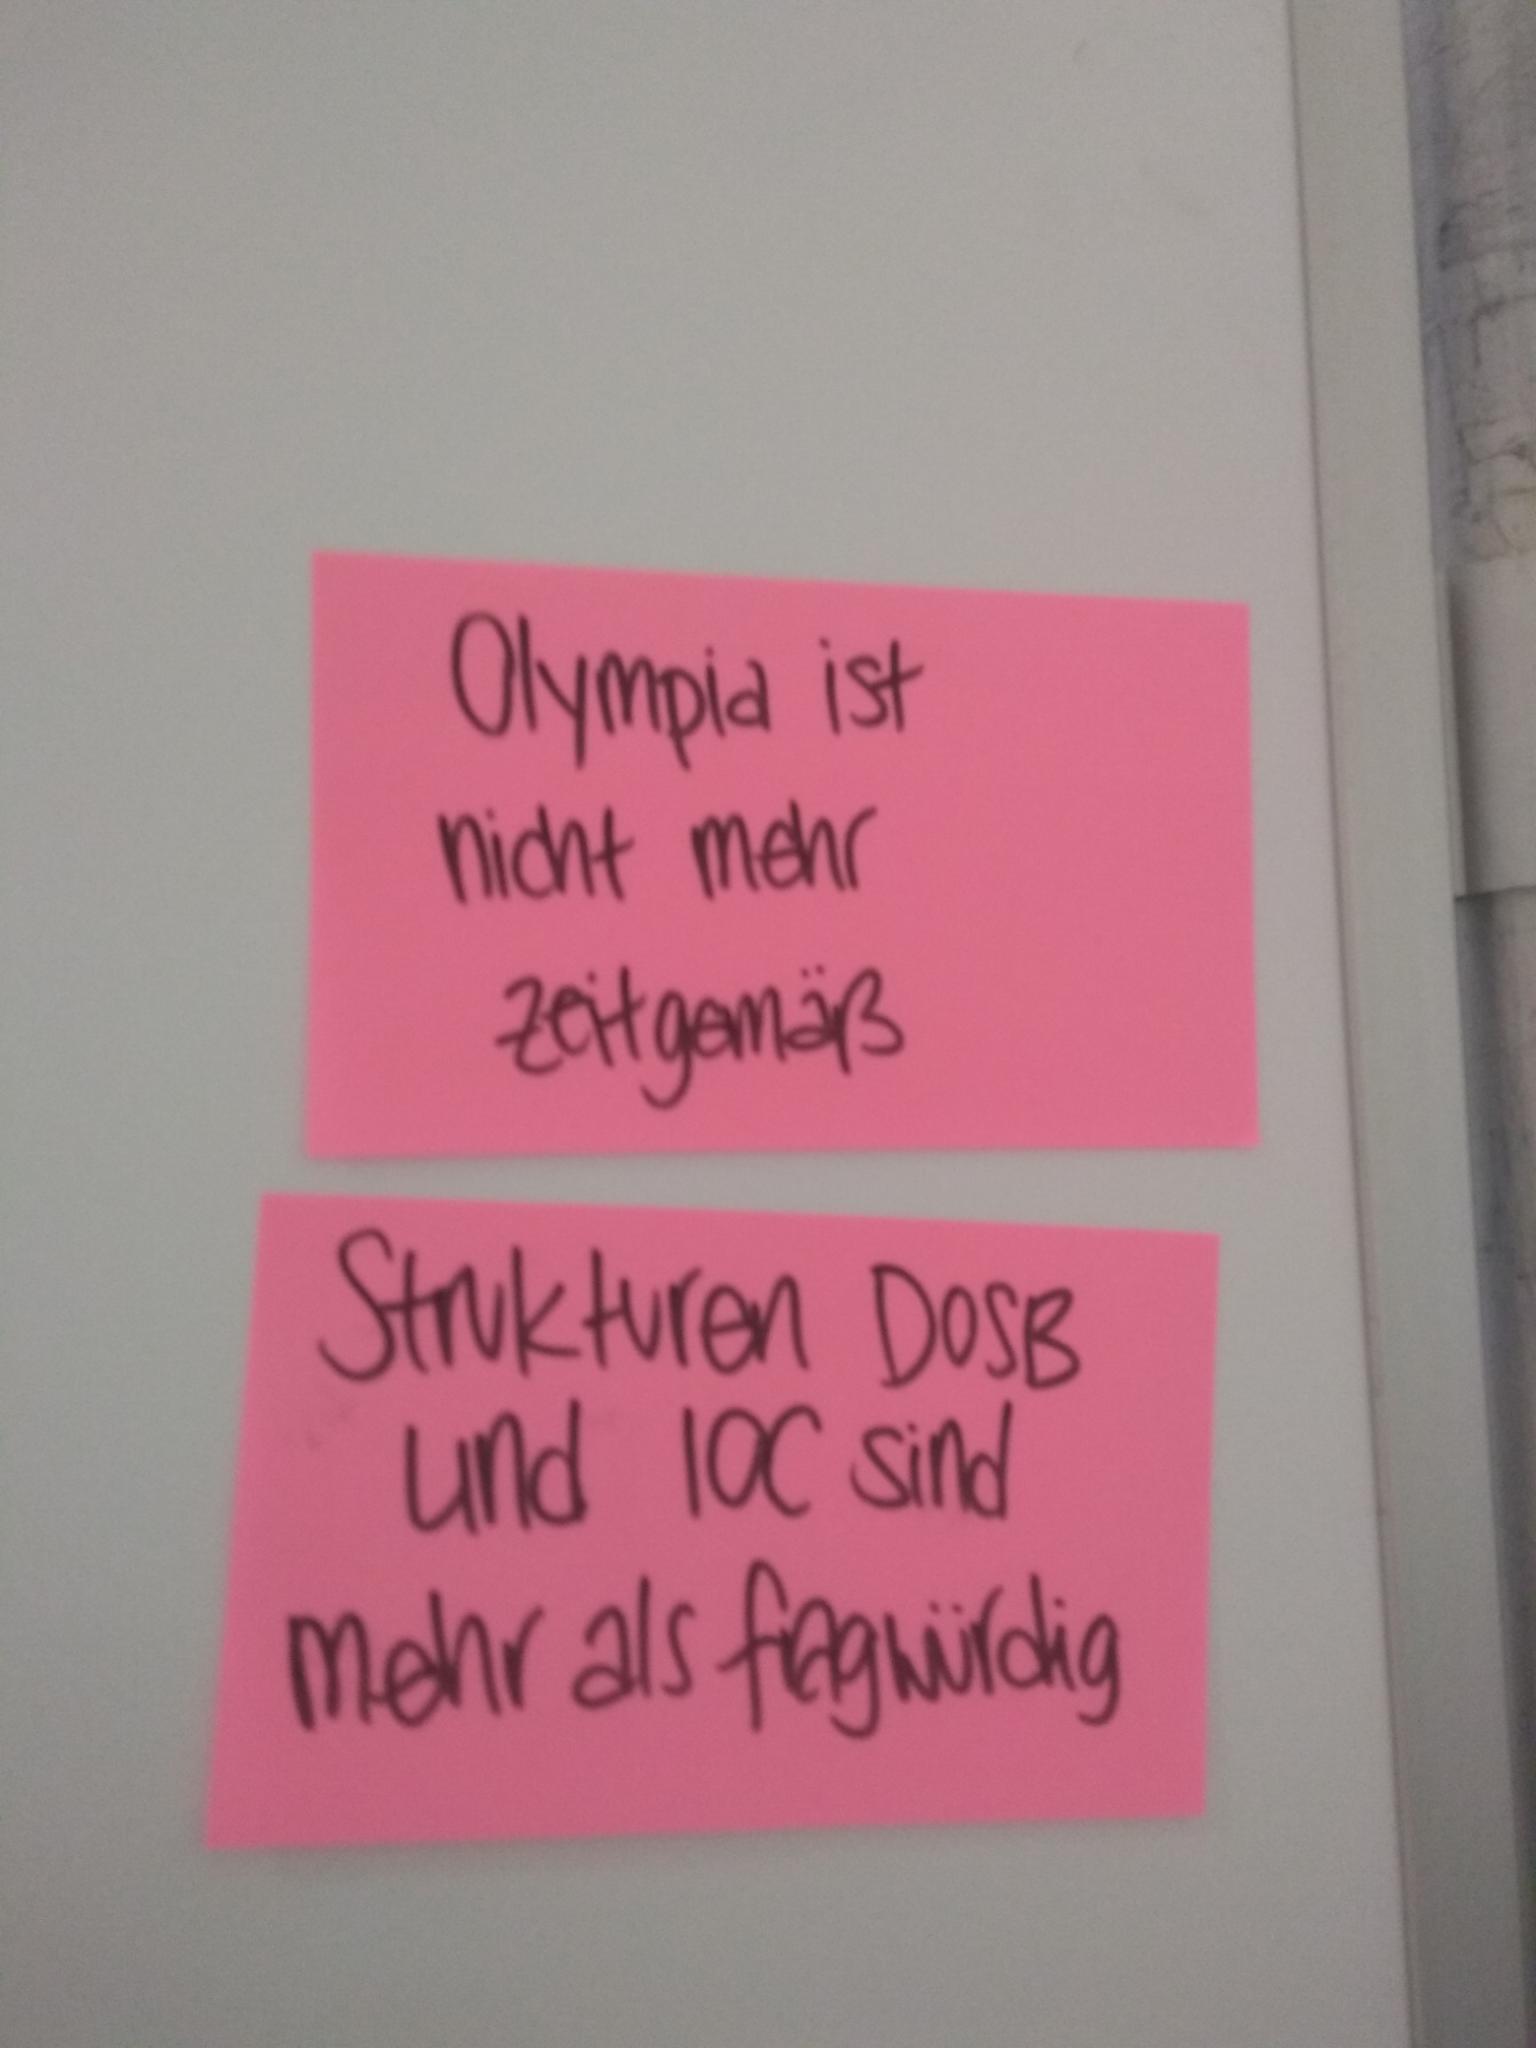 Olympia ist
nicht mehr
zeitgemäß
Strukturen DOSB
und IOC sind
mehr als fragwürdig